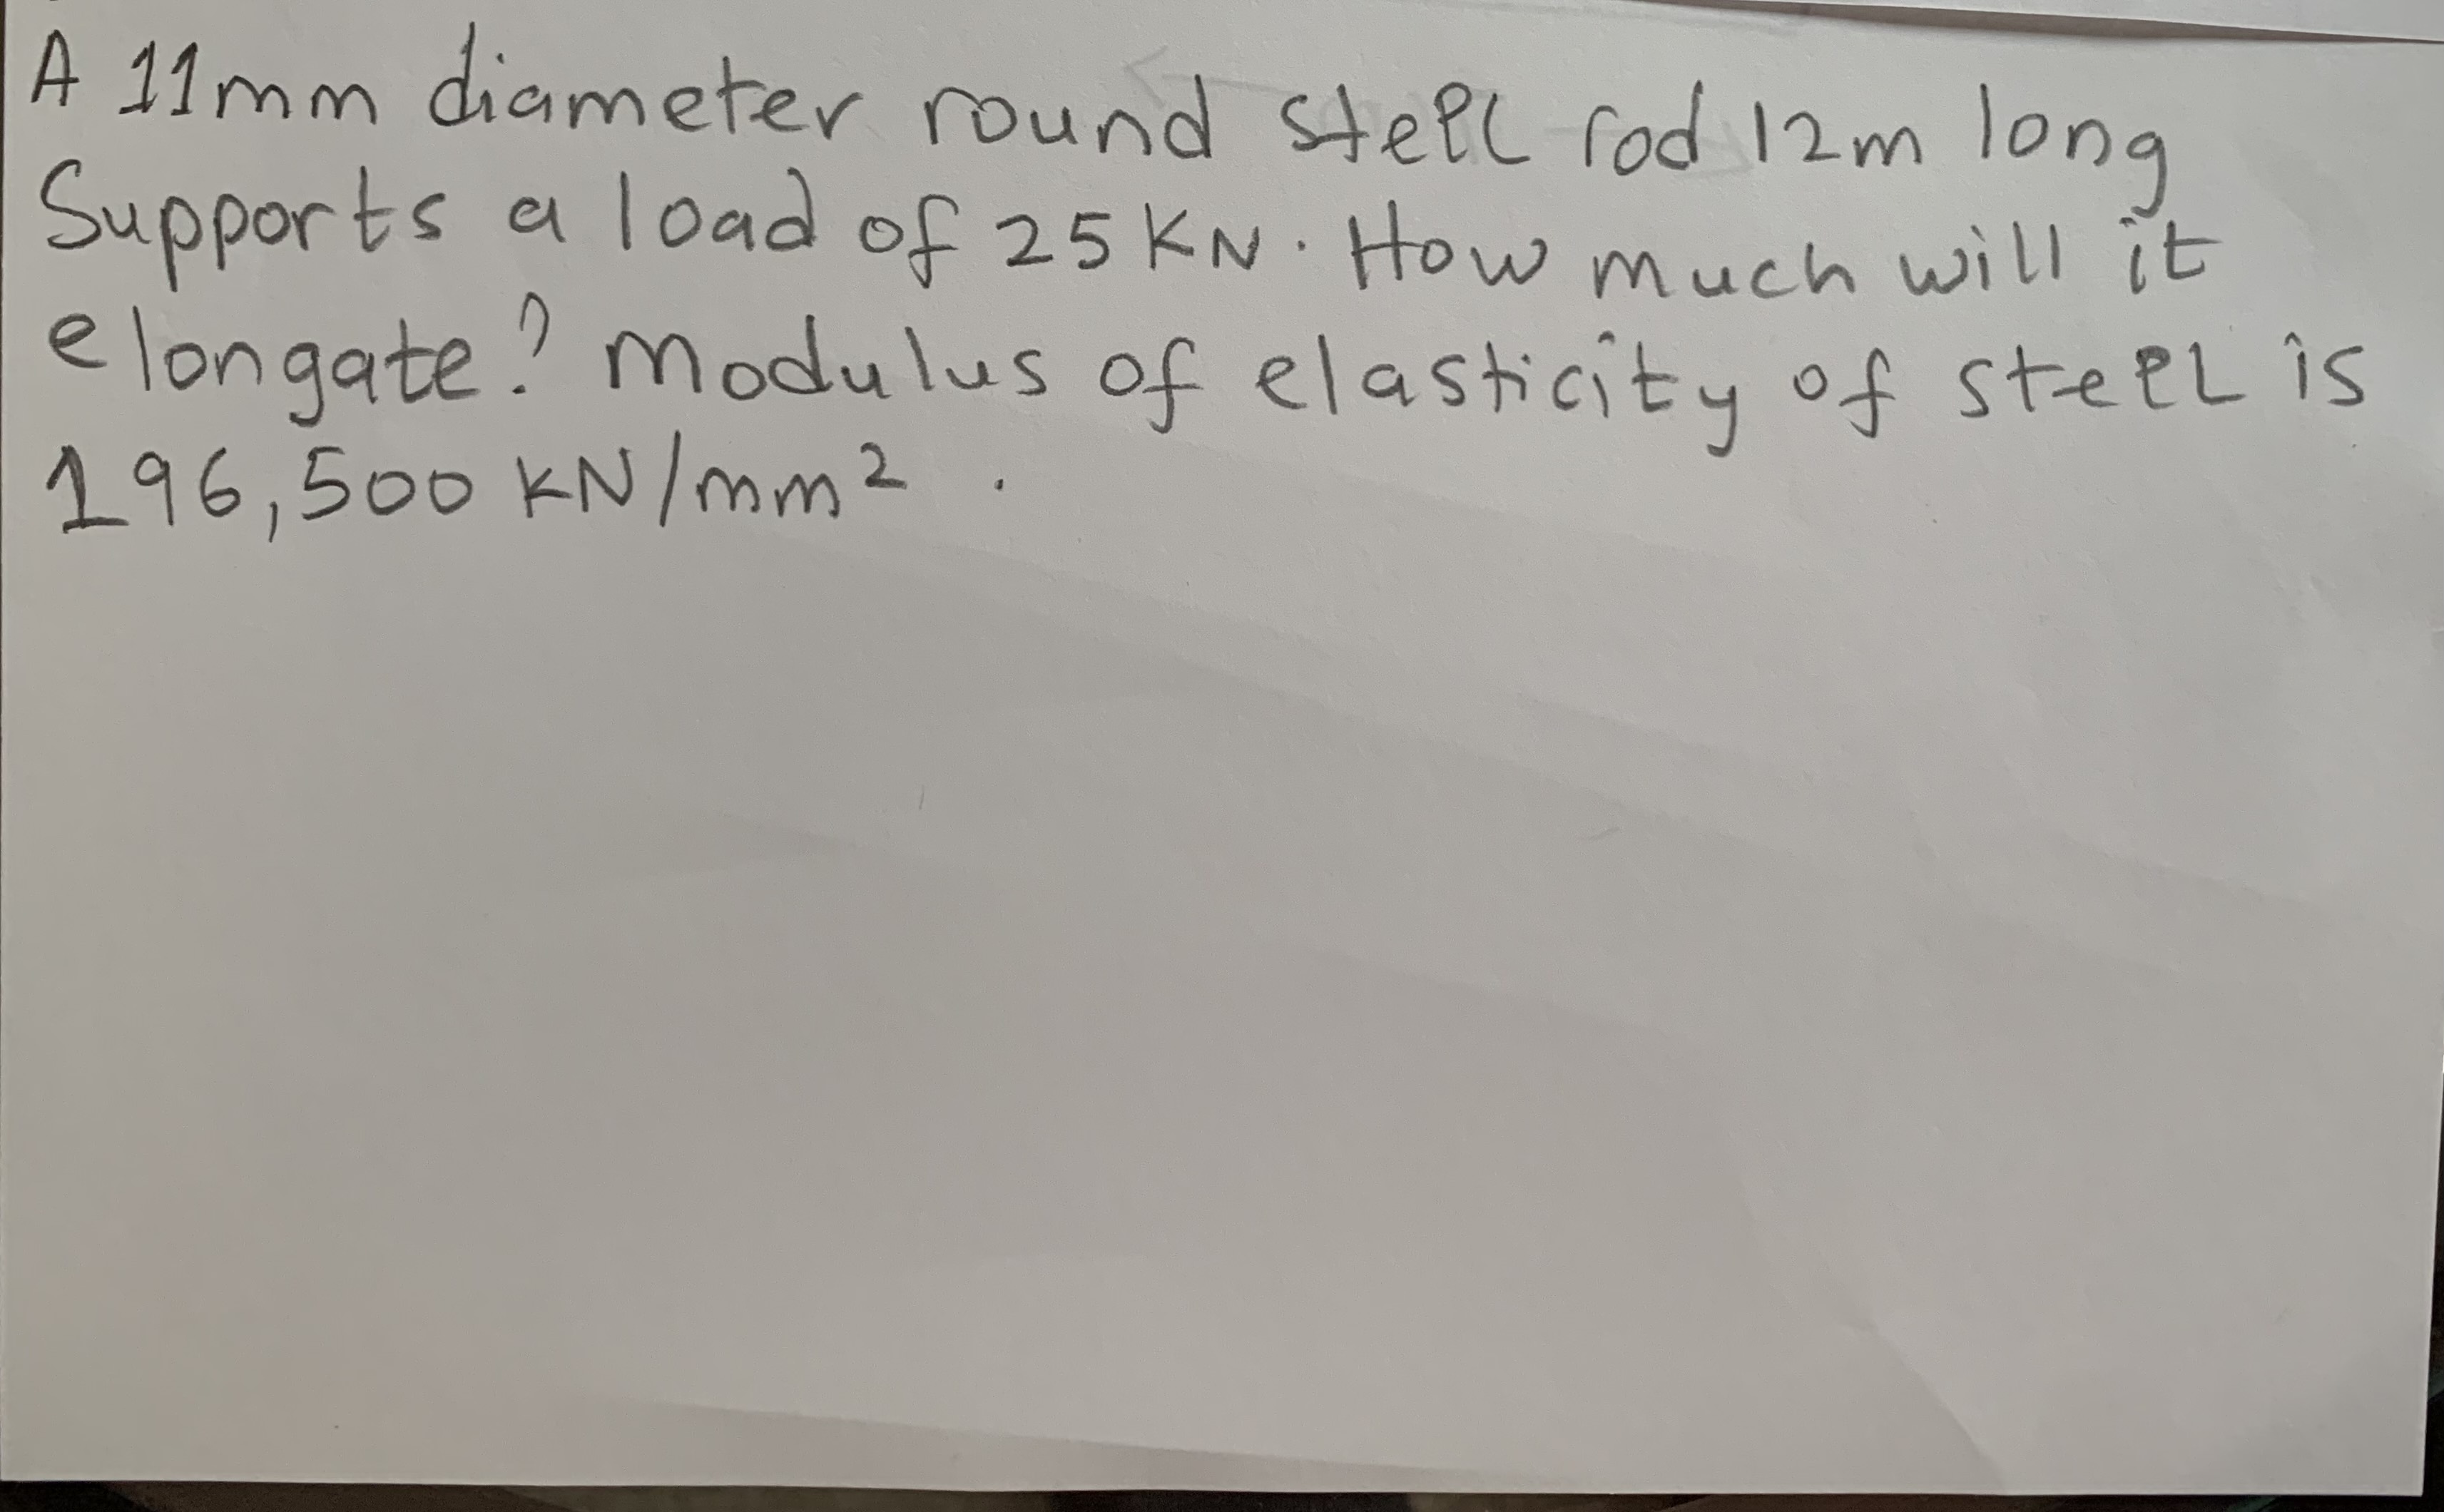 A 11mm diameter round steel rod 12m long
Supports a load of 25 KN. How much will it
elongate? Modulus of elasticity of steel is
196,500 KN/mm² .